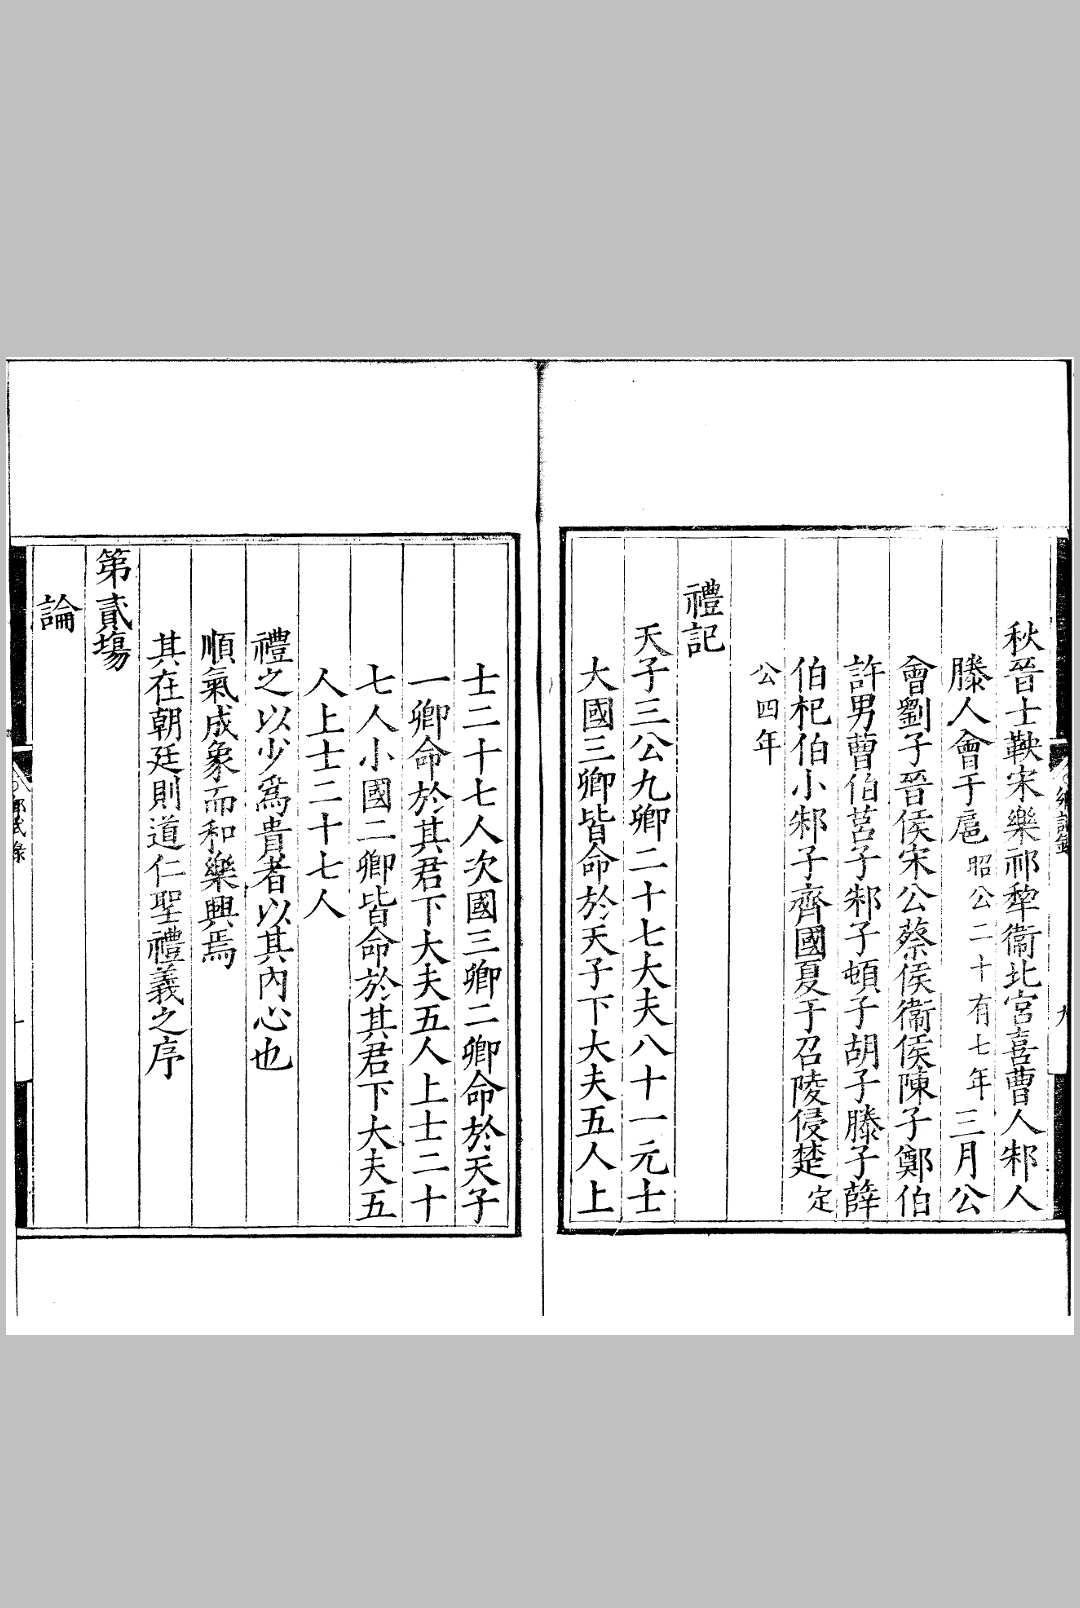 秋晉士鞅宋樂祁犂衞北宮喜曹人邾人
滕人會于扈昭公二十有七年三月公
會劉子晉侯宋公蔡侯衞侯陳子鄭伯
許男曹伯莒子邾子頓子胡子滕子薛
伯杞伯小邾子齊國夏于召陵侵楚定
公四年
禮記
天子三公九卿二十七大夫八十一元士
大國三卿皆命於天子下大夫五人上
士二十七人次國三卿二卿命於天子
一卿命於其君下大夫五人上士二十
七人小國二卿皆命於其君下大夫五
人上士二十七人
禮之以少爲貴者以其內心也
順氣成象而和樂興焉
其在朝廷則道仁聖禮義之序
第貳塲
論